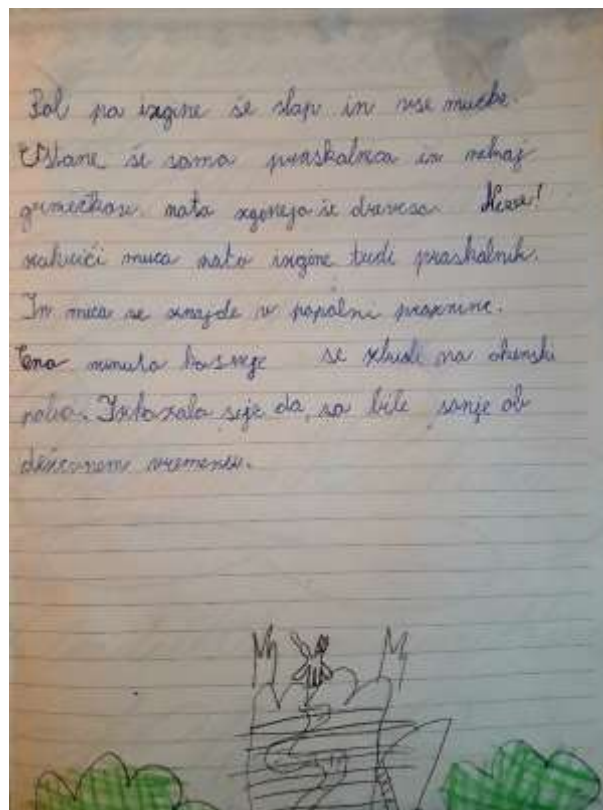 pa izgine še slap in vse mucke.
Ostane še sama praskalnica in nekaj
nato izginejo še drevesa. Neee!
zakriči muca nato izgine tudi praskalnik.
In muca se znajde v popolni praznine.
Ena minuta se zbudi na okenski
polici. Izkazala seje da, so bile sanje ob
deževnem vremenu.